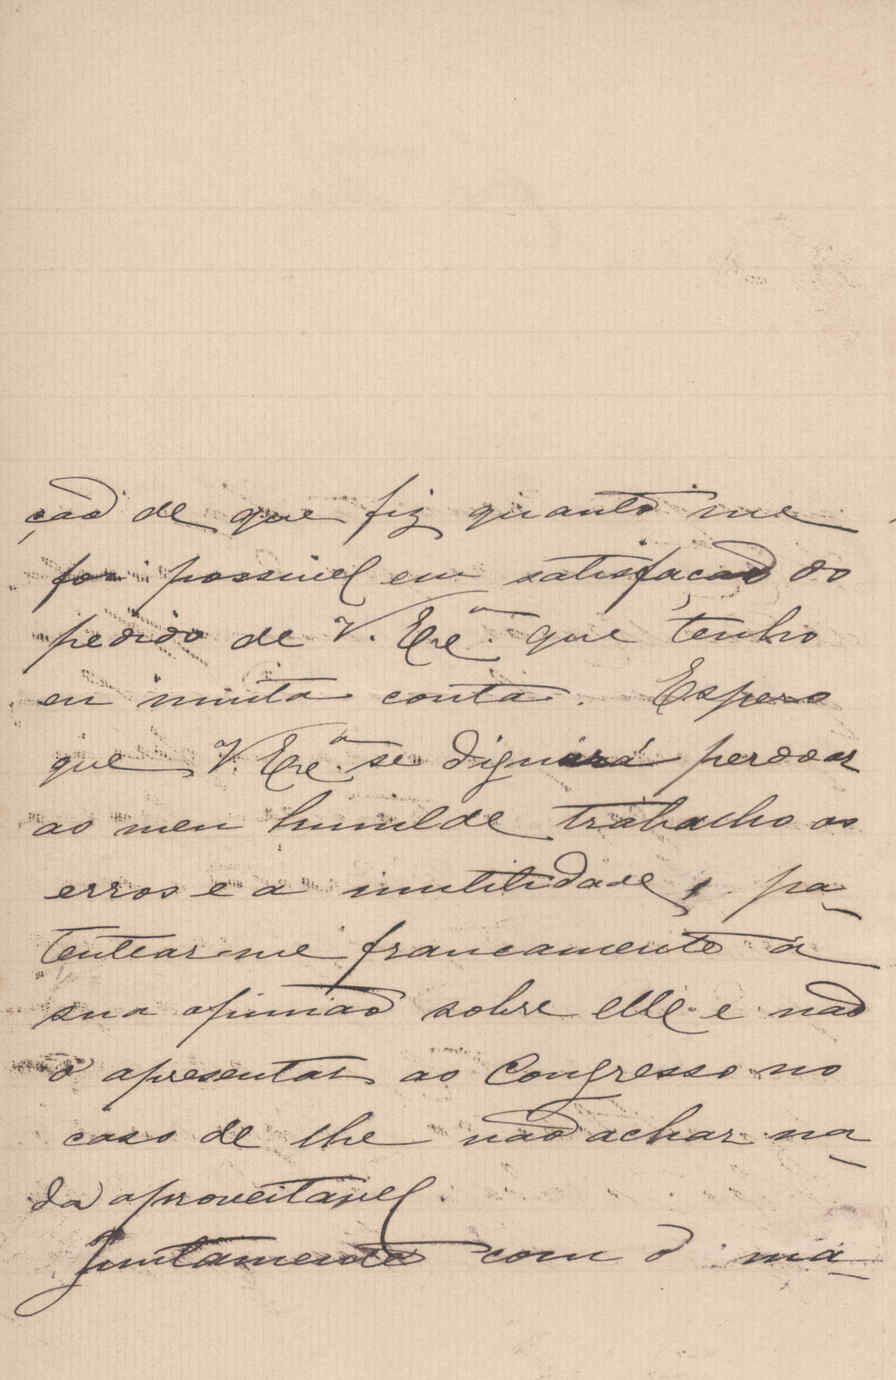 ção de que fiz quanto me
foi possivel em satisfação do
pedido de V. Exª. que tenho
em muita conta. Espero
que V. Exª. se dignará perdoar
ao meu humilde trabalho os
erros e a inutilidade, pa-
tentear-me francamente a
sua opinião sobre elle e não
o apresentar ao Congresso no
caso de lhe não achar na-
da aproveitavel.
Juntamente com o ma-